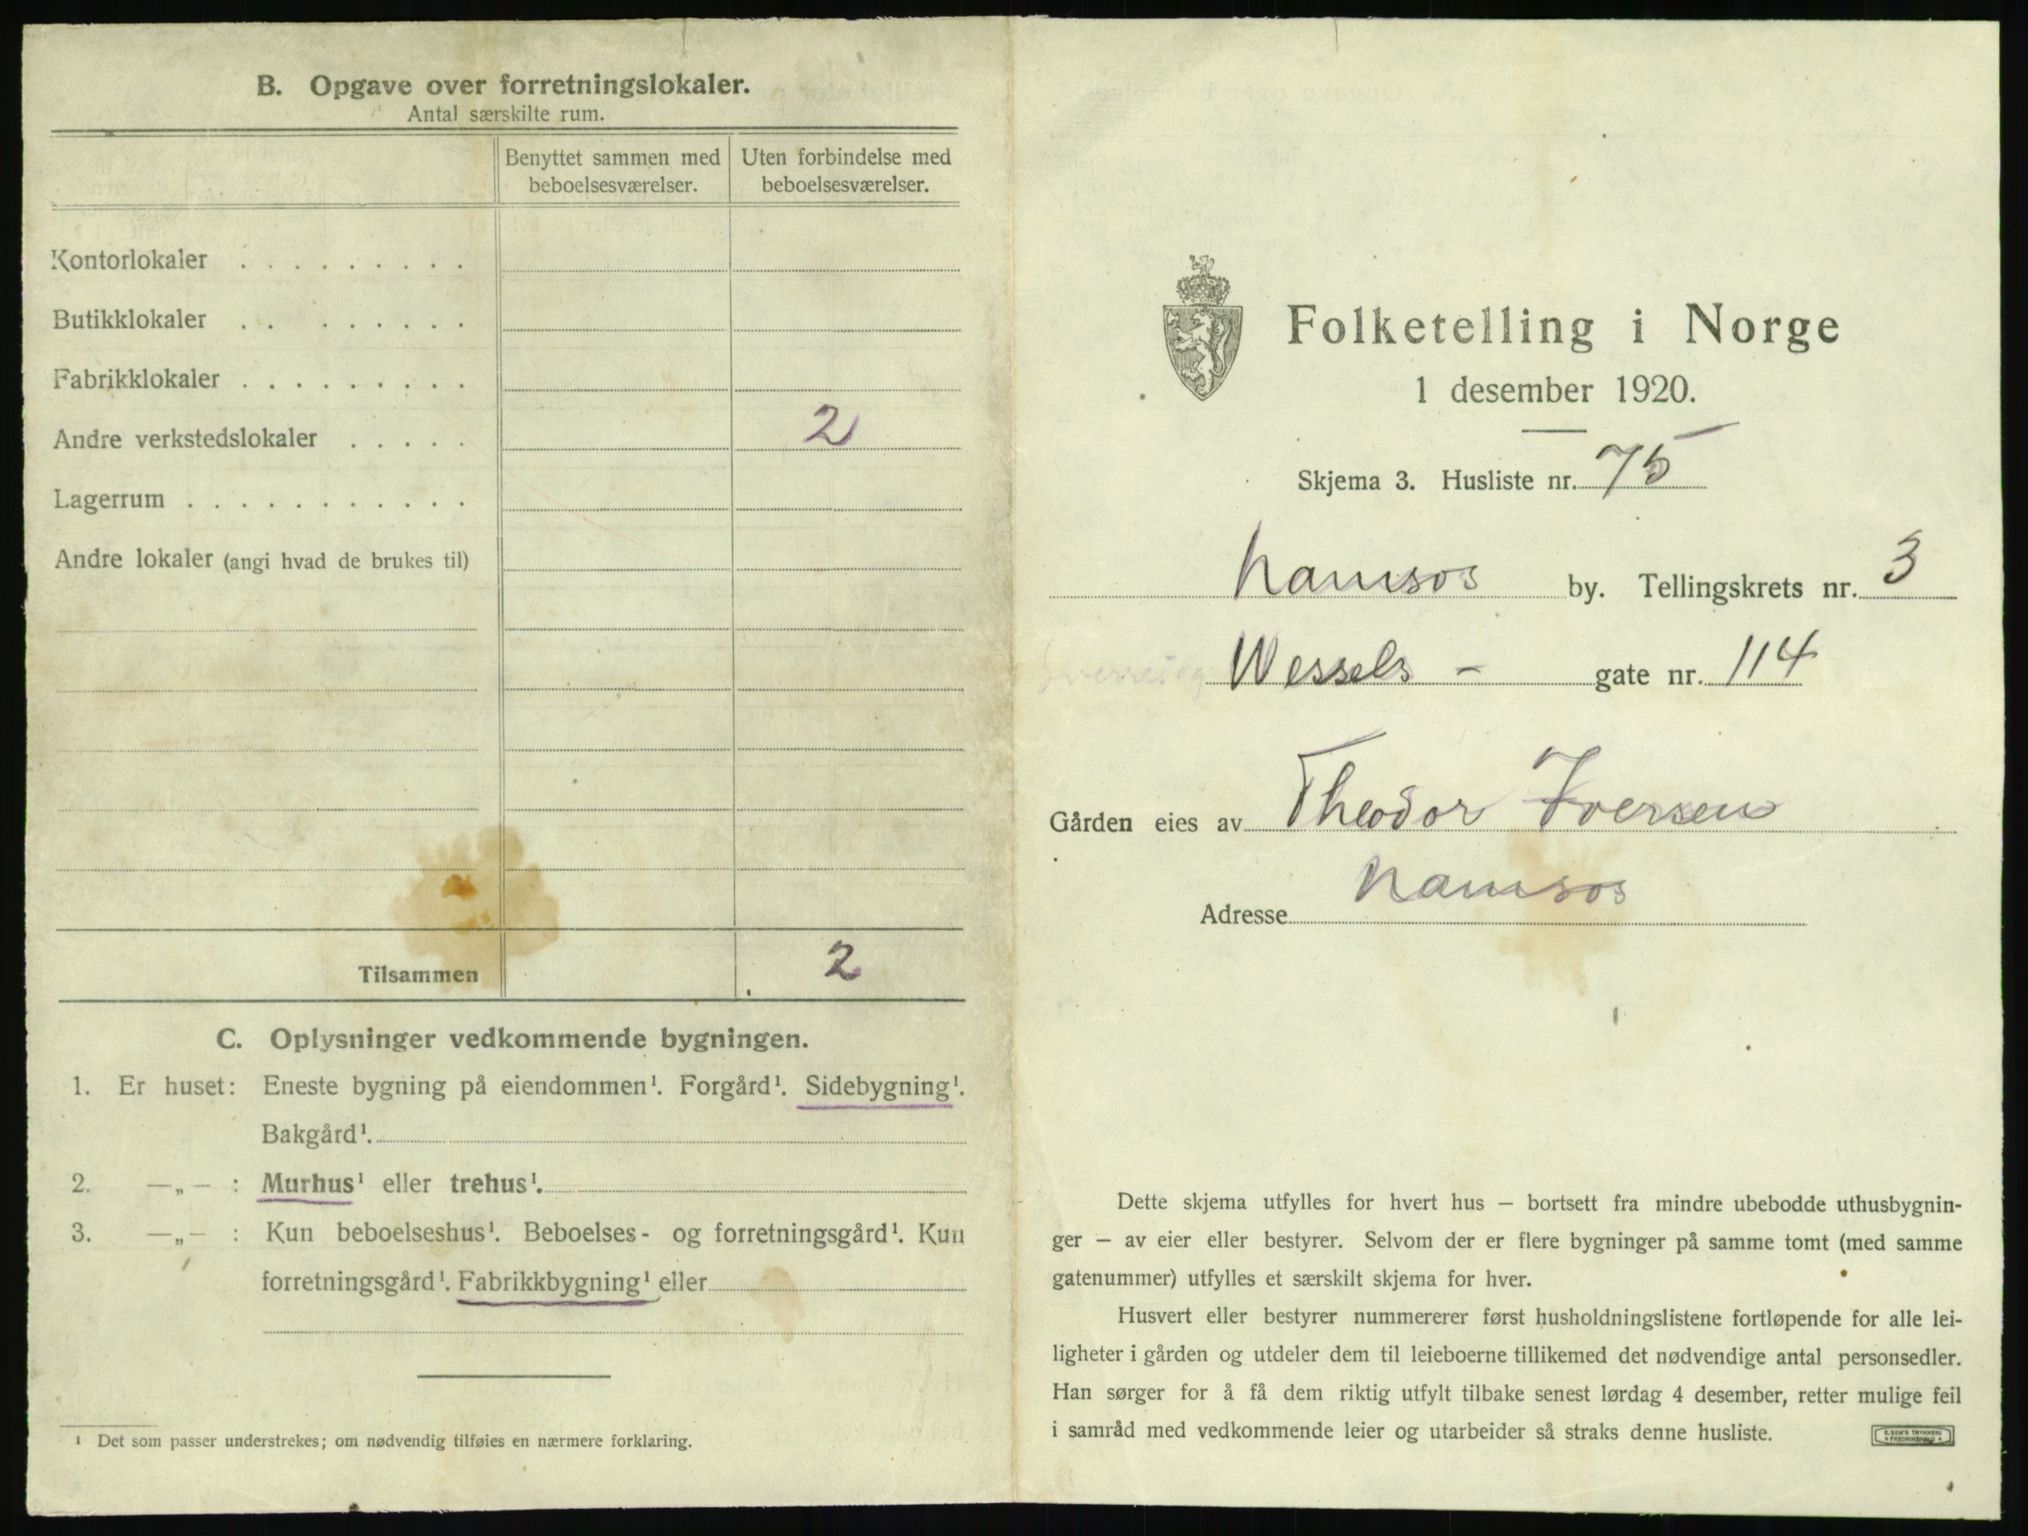 B. Opgave over forretningslokaler.
Antal særskilte rum.
Benyttet sammen med beboelsesværelser.
Uten forbindelse med beboelsesværelser.
Kontorlokaler . . . . . . . . .
Butikklokaler . . . . . . . .
Fabrikklokaler . . . . . . . . .
Andre verkstedslokaler . . . . . 2
Lagerrum . . . . . . . . . . .
Andre lokaler (angi hvad de brukes til)
Tilsammen 2
C. Oplysninger vedkommende bygningen.
1. Er huset: Eneste bygning på eiendommen¹. Forgård¹. Sidebygning¹.
Bakgård¹.
2. —„— : Murhus¹ eller trehus¹.
3. —„— : Kun beboelseshus¹. Beboelses- og forretningsgård¹. Kun
forretningsgård¹. Fabrikkbygning¹ eller
¹ Det som passer understrekes; om nødvendig tilføies en nærmere forklaring.
Folketelling i Norge
1 desember 1920.
Skjema 3. Husliste nr. 75
Namsos by. Tellingskrets nr. 3
Wessels - gate nr. 114
Gården eies av Theodor Iversen
Adresse Namsos
Dette skjema utfylles for hvert hus — bortsett fra mindre ubebodde uthusbygnin-
ger — av eier eller bestyrer. Selvom der er flere bygninger på samme tomt (med samme
gatenummer) utfylles et særskilt skjema for hver.
Husvert eller bestyrer nummererer først husholdningslistene fortløpende for alle lei-
ligheter i gården og utdeler dem til leieboerne tillikemed det nødvendige antal personsedler.
Han sørger for å få dem riktig utfylt tilbake senest lørdag 4 desember, retter mulige feil
i samråd med vedkommende leier og utarbeider så straks denne husliste.